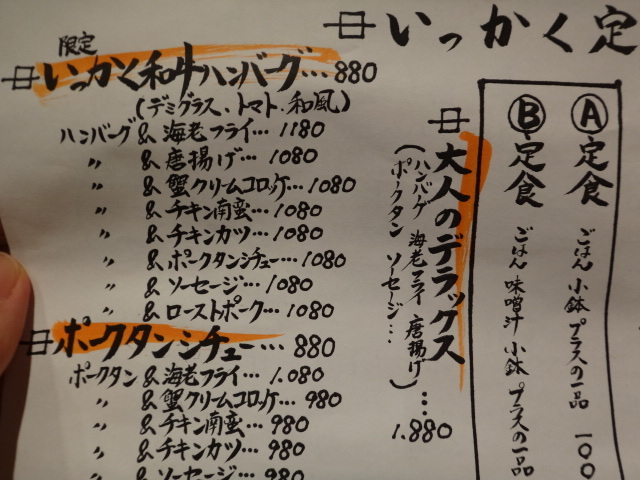 いっかく定
限定
いっかく和牛ハンバーグ…880
(デミグラス、トマト、和風)
ハンバーグ&海老フライ…1180
〃 &唐揚げ…1080
〃 &蟹クリームコロッケ…1080
〃 &チキン南蛮…1080
〃 &チキンカツ…1080
〃 &ポークタンシチュー…1080
〃 &ソーセージ…1080
〃 &ローストポーク…1080
ポークタンシチュー…880
ポークタン&海老フライ…1.080
〃 &蟹クリームコロッケ…980
〃 &チキン南蛮…980
〃 &チキンカツ…980
〃 &ソーセージ…980
大人のデラックス
(ハンバーグ 海老フライ 唐揚げ
ポークタン ソーセージ…)…
1.880
Ⓐ定食 ごはん 小鉢 プラスの一品 一〇〇
Ⓑ定食 ごはん 味噌汁 小鉢 プラスの一品